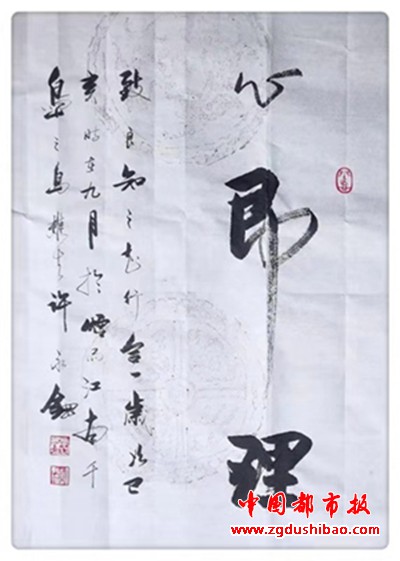 心即理
致良知之知行合一歲次己
亥時在九月於江南千
島之島許永
中国都市报
www.zgdushibao.com